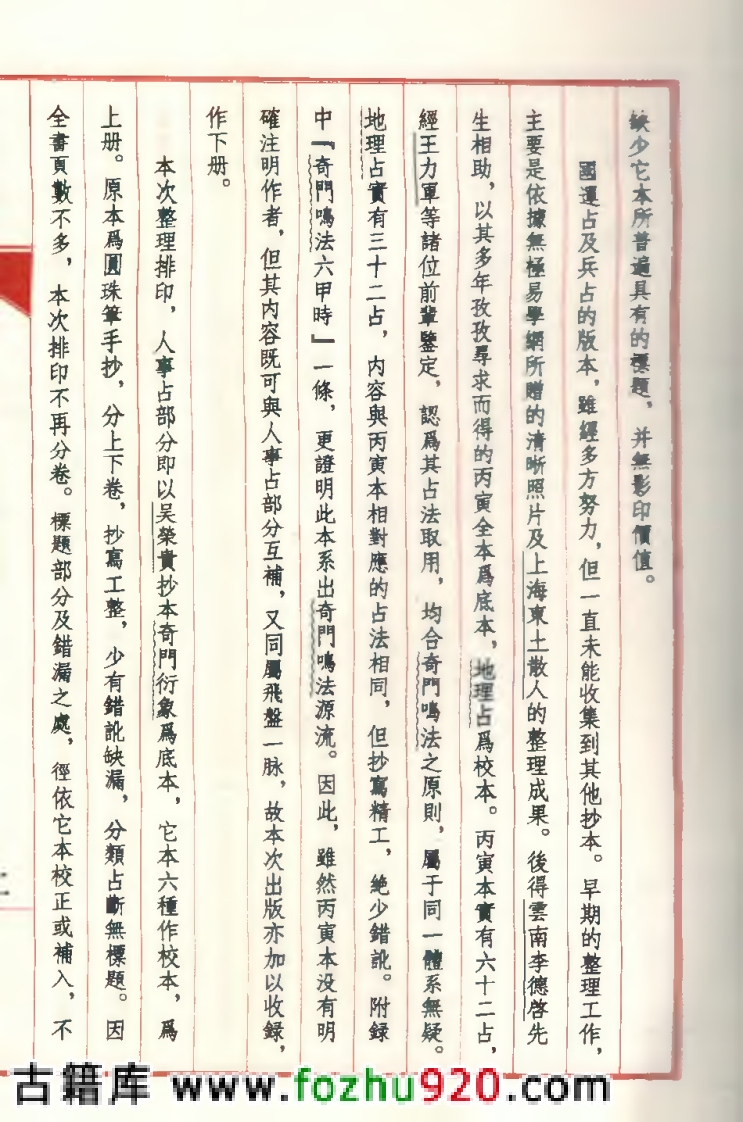 缺少它本所普遍具有的標題，并無影印價值。
國運占及兵占的版本，雖經多方努力，但一直未能收集到其他抄本。早期的整理工作，
主要是依據無極易學網所贈的清晰照片及上海東土散人的整理成果。後得雲南李德啓先
生相助，以其多年孜孜尋求而得的丙寅全本爲底本，地理占爲校本。丙寅本實有六十二占，
經王力軍等諸位前輩鑒定，認爲其占法取用，均合奇門鳴法之原則，屬于同一體系無疑。
地理占實有三十二占，内容與丙寅本相對應的占法相同，但抄寫精工，絶少錯訛。附録
中『奇門鳴法六甲時』一條，更證明此本系出奇門鳴法源流。因此，雖然丙寅本没有明
確注明作者，但其内容既可與人事占部分互補，又同屬飛盤一脉，故本次出版亦加以收録，
作下册。
本次整理排印，人事占部分即以吴榮貴抄本奇門衍象爲底本，它本六種作校本，爲
上册。原本爲圓珠筆手抄，分上下卷，抄寫工整，少有錯訛缺漏，分類占斷無標題。因
全書頁數不多，本次排印不再分卷。標題部分及錯漏之處，徑依它本校正或補入，不
古籍库 www.fozhu920.com